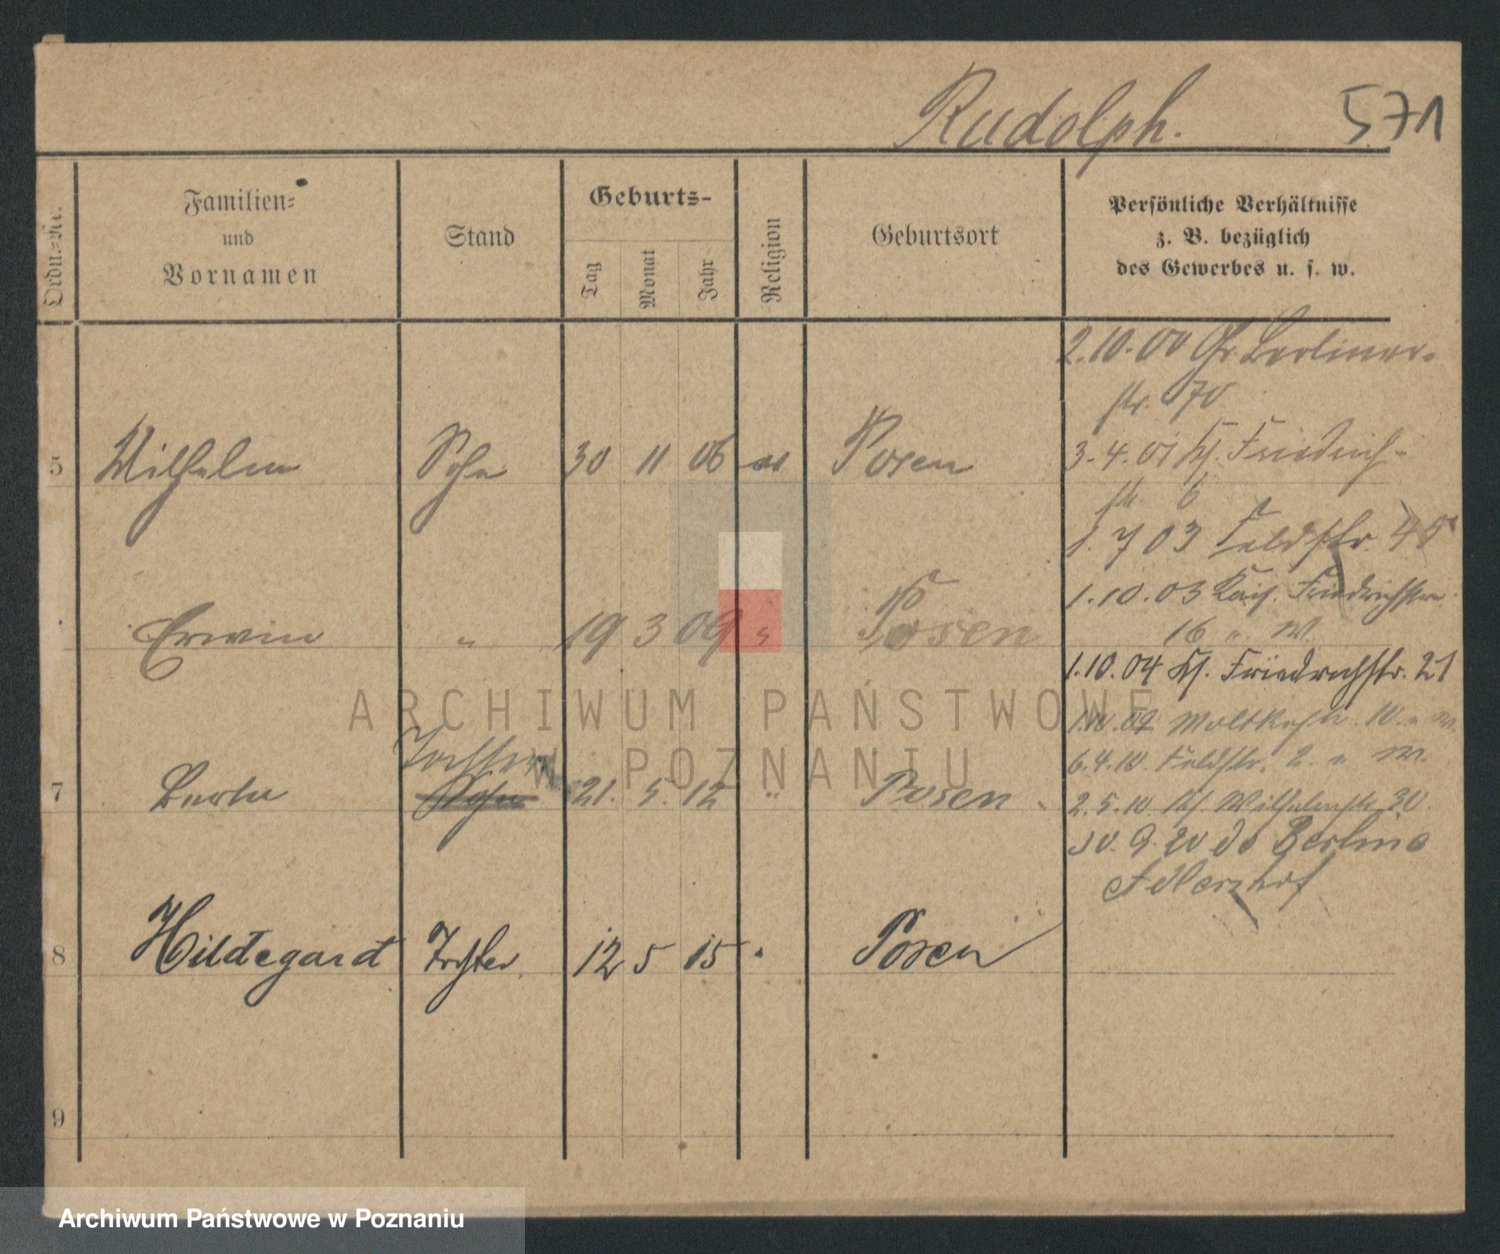 Rudolph.
571
Ordn.-Nr.
Familien-
und
Vornamen
Stand
Geburts-
Tag
Monat
Jahr
Religion
Geburtsort
Persönliche Verhältnisse
z. B. bezüglich
des Gewerbes u. s. w.
2.10.00 Gr. Berliner-
str. 70
5 Wilhelm Sohn 30 11 06 Posen
3.4.01 Kl. Friedrich-
str 6
1.7 03 Feldstr. 45
1.10.03 Kais. Friedrichstr.
16 " W.
Erwin " 19 3 09 " Posen
1.10.04 Kl. Friedrichstr. 21
Moltkestr. 10
6.4.10 Feldstr. 2. " W.
Tochter
7 21. 5. 12 " Posen
2.5.10 Kl. Wilhelmstr. 30.
30. 9. 20 do Berlin
Adlershof
8 Hildegard Tochter 12 5 15 " Posen
9
ARCHIWUM PAŃSTWOWE
W POZNANIU
Archiwum Państwowe w Poznaniu